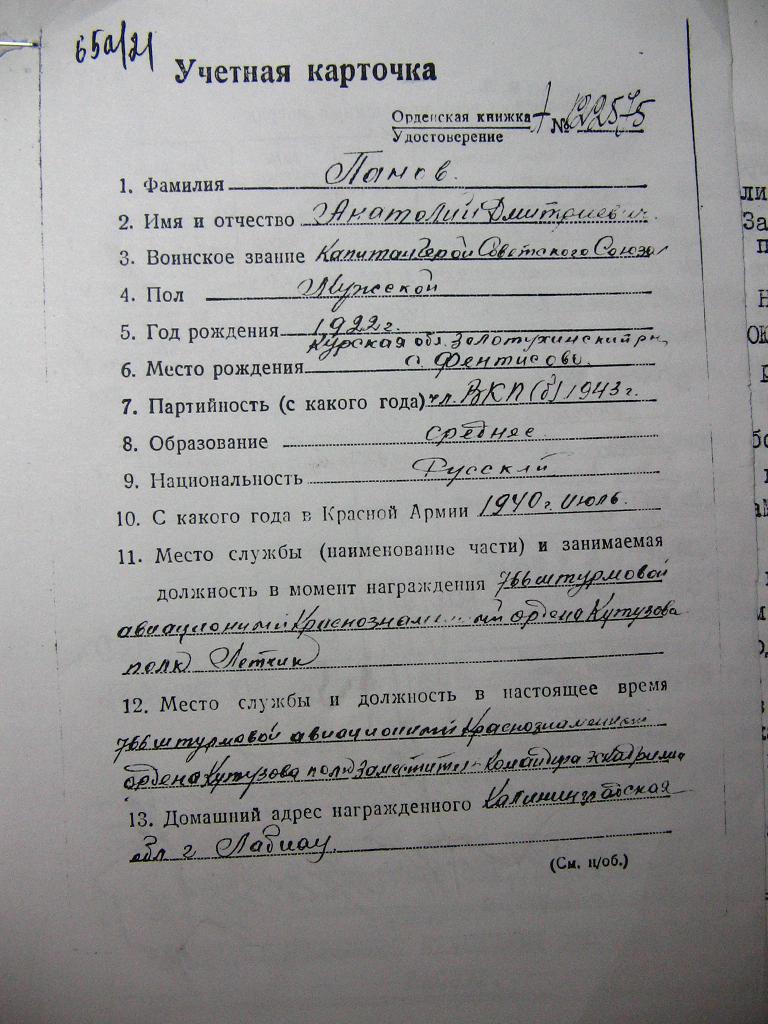 65а/21
Учетная карточка
Орденская книжка
Удостоверение № 122575
1. Фамилия Панов.
2. Имя и отчество Анатолий Дмитриевич.
3. Воинское звание Капитан Герой Советского Союза
4. Пол Мужской
5. Год рождения 1922 г.
Курская обл. Золотухинский рн,
6. Место рождения с. Фентисово.
7. Партийность (с какого года) чл. ВКП(б) 1943 г.
8. Образование среднее
9. Национальность Русский
10. С какого года в Красной Армии 1940 г. июль.
11. Место службы (наименование части) и занимаемая
должность в момент награждения 766 штурмовой
авиационный Краснознаменный ордена Кутузова
полк Летчик
12. Место службы и должность в настоящее время
766 штурмовой авиационный Краснознаменный
ордена Кутузова полк Заместитель Командира эскадрильи
13. Домашний адрес награжденного Калининградская
обл г Лабиау.
(См. н/об.)
ли
За
п